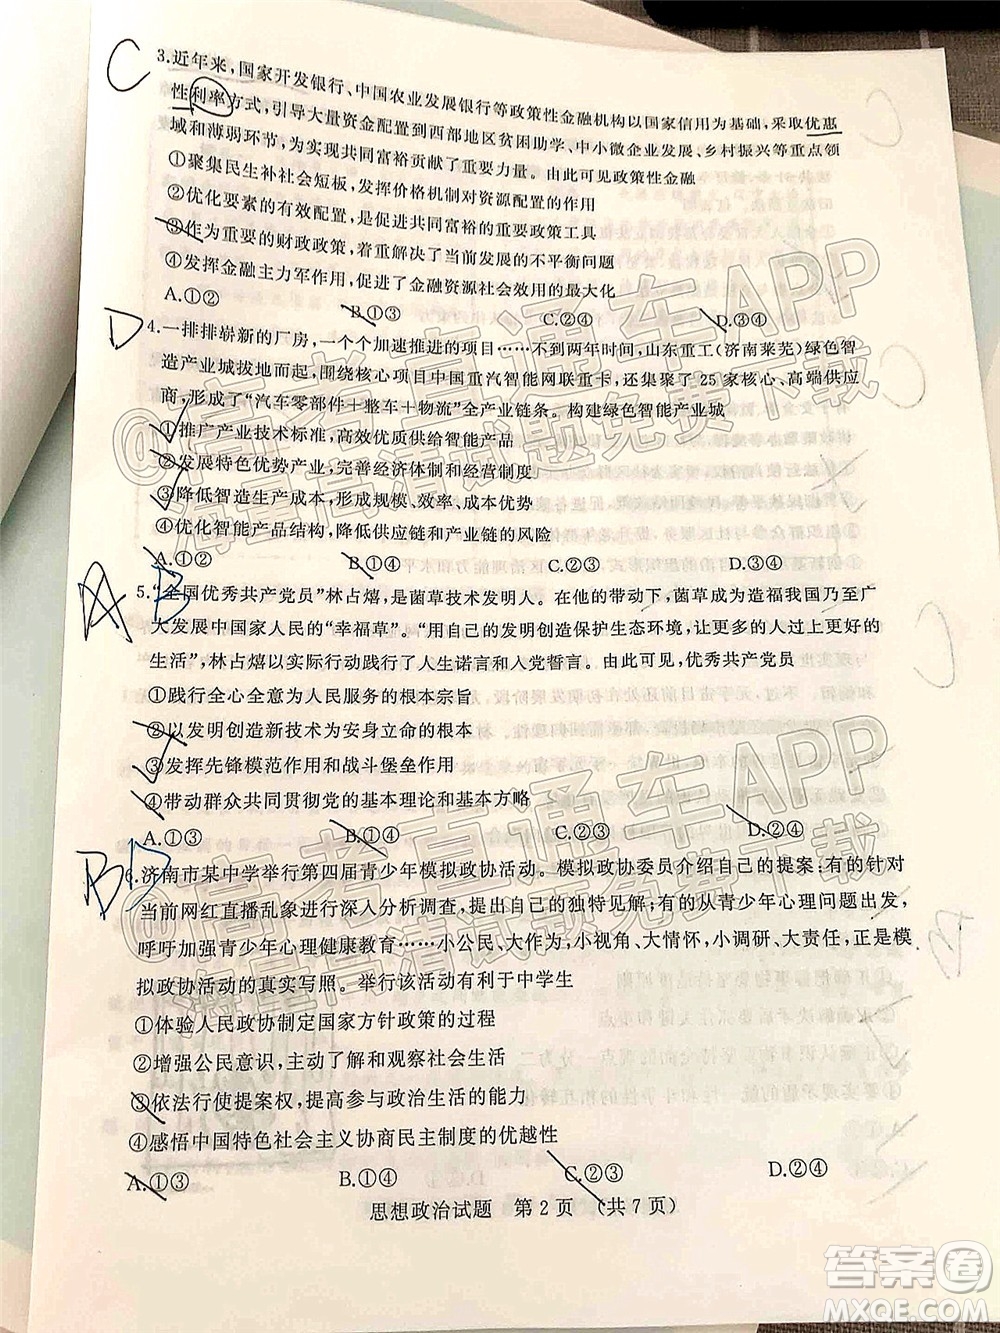 C
3.近年来,国家开发银行、中国农业发展银行等政策性金融机构以国家信用为基础,采取优惠
性利率方式,引导大量资金配置到西部地区贫困助学、中小微企业发展、乡村振兴等重点领
域和薄弱环节,为实现共同富裕贡献了重要力量。由此可见政策性金融
①聚集民生补社会短板,发挥价格机制对资源配置的作用
②优化要素的有效配置,是促进共同富裕的重要政策工具
③作为重要的财政政策,着重解决了当前发展的不平衡问题
④发挥金融主力军作用,促进了金融资源社会效用的最大化
A.①② B.①③ C.②④ D.③④
D
4.一排排崭新的厂房,一个个加速推进的项目……不到两年时间,山东重工(济南莱芜)绿色智
造产业城拔地而起,围绕核心项目中国重汽智能网联重卡,还集聚了25家核心、高端供应
商,形成了“汽车零部件+整车+物流”全产业链条。构建绿色智能产业城
①推广产业技术标准,高效优质供给智能产品
②发展特色优势产业,完善经济体制和经营制度
③降低智造生产成本,形成规模、效率、成本优势
④优化智能产品结构,降低供应链和产业链的风险
A.①② B.①④ C.②③ D.③④
A B
5.“全国优秀共产党员”林占熺,是菌草技术发明人。在他的带动下,菌草成为造福我国乃至广
大发展中国家人民的“幸福草”。“用自己的发明创造保护生态环境,让更多的人过上更好的
生活”,林占熺以实际行动践行了人生诺言和入党誓言。由此可见,优秀共产党员
①践行全心全意为人民服务的根本宗旨
②以发明创造新技术为安身立命的根本
③发挥先锋模范作用和战斗堡垒作用
④带动群众共同贯彻党的基本理论和基本方略
A.①③ B.①④ C.②③ D.②④
B D
6.济南市某中学举行第四届青少年模拟政协活动。模拟政协委员介绍自己的提案:有的针对
当前网红直播乱象进行深入分析调查,提出自己的独特见解;有的从青少年心理问题出发,
呼吁加强青少年心理健康教育……小公民、大作为,小视角、大情怀,小调研、大责任,正是模
拟政协活动的真实写照。举行该活动有利于中学生
①体验人民政协制定国家方针政策的过程
②增强公民意识,主动了解和观察社会生活
③依法行使提案权,提高参与政治生活的能力
④感悟中国特色社会主义协商民主制度的优越性
A.①③ B.①④ C.②③ D.②④
思想政治试题 第2页 (共7页)
@高考直通车APP
海量高清试题免费下载
@高考直通车APP
海量高清试题免费下载
答案圈
MXQE.COM